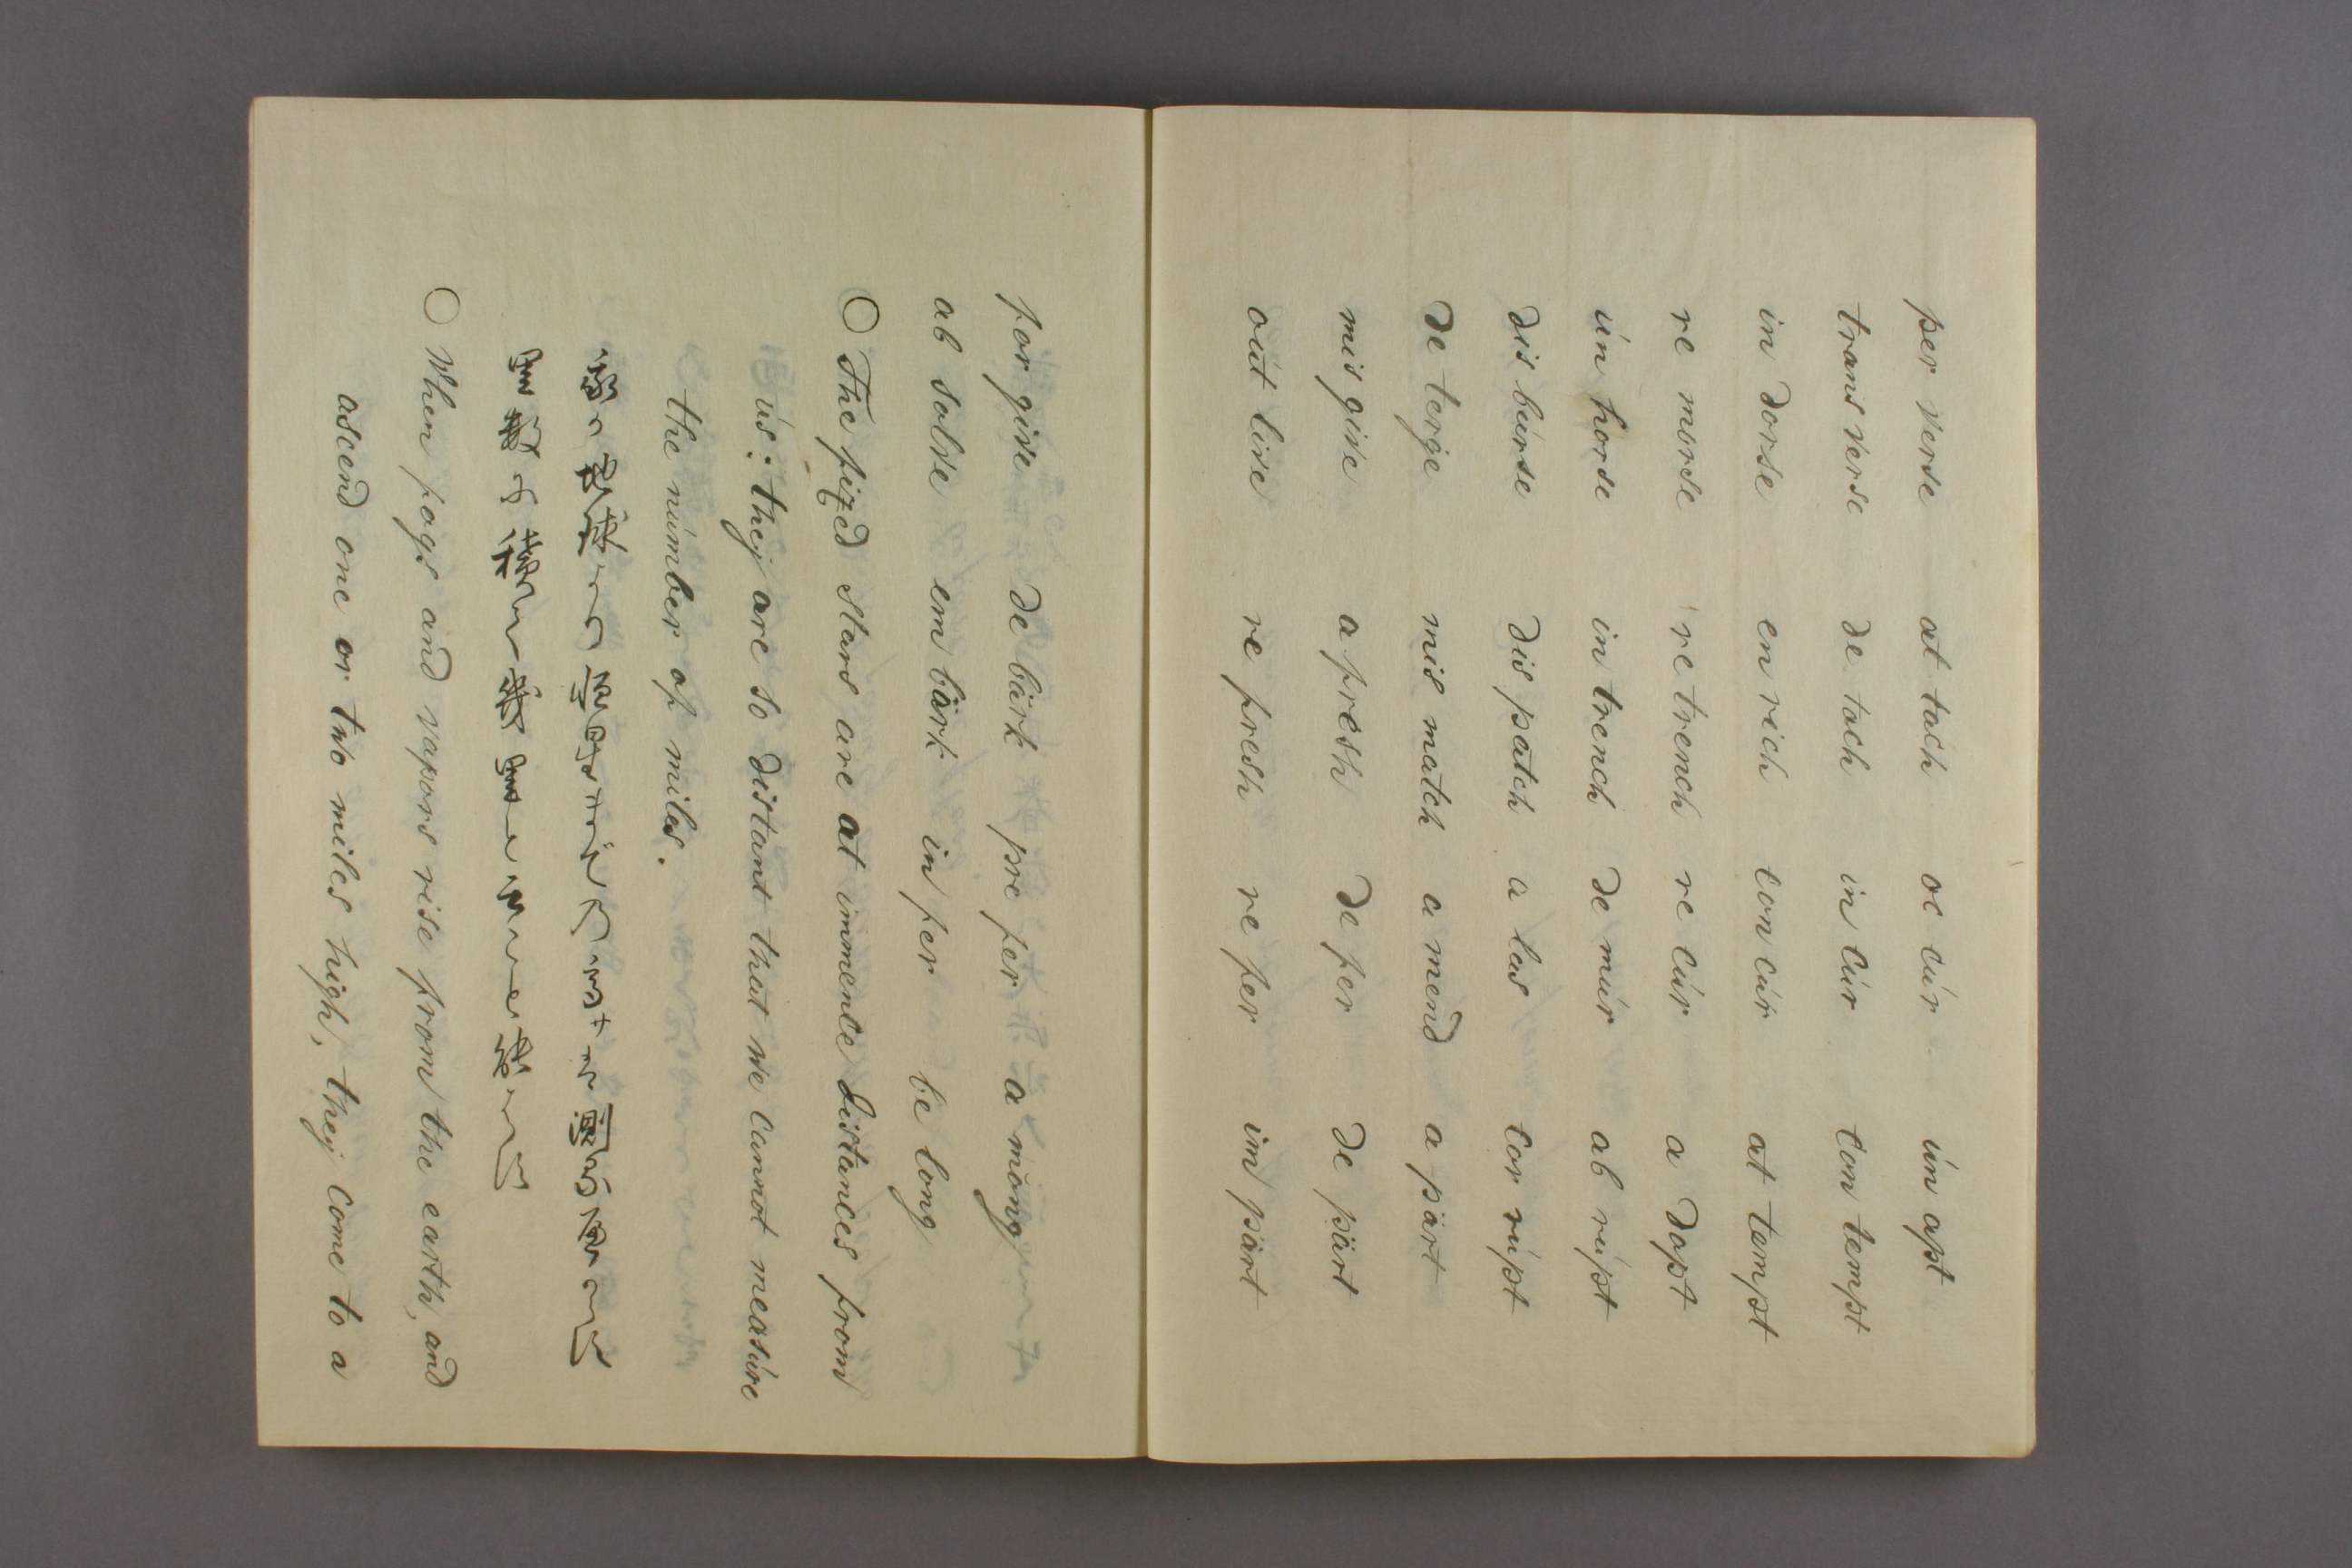 per verse at tach oc cúr ún apt
trans verse de tach in cúr con tempt
in dorse en rich con cúr at tempt
re morse re trench re cúr a dopt
ún horse in trench de múr ab rúpt
dis búrse dis patch a las cor rúpt
de terge mis match a mend a pärt
mis give a fresh de fer de pärt
oút live re fresh re fer im pärt
for give de bärk pre fer a möng
ab solve em bärk in fer be long
○ The fixed stars are at immence distances from
ús: they are so distant that we cannot measúre
the númber of miles.
○ When fogs and vapors rise from the earth, and
ascend one or two miles high, they come to a